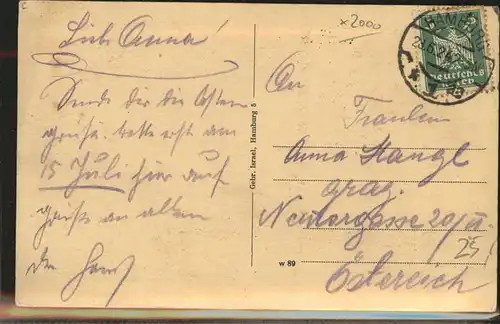 Liebe Anna!
Sende dir die besten
Grüße. erst am
15 Juli hier auf
Grüße an allen
dein Hans
Gebr. Israel, Hamburg 5
w 89
x2000
HAMBURG
Deutsches
Reich
An
Fräulein
Anna Stangl
Graz.
Neutorgasse 20/II
25
Östereich